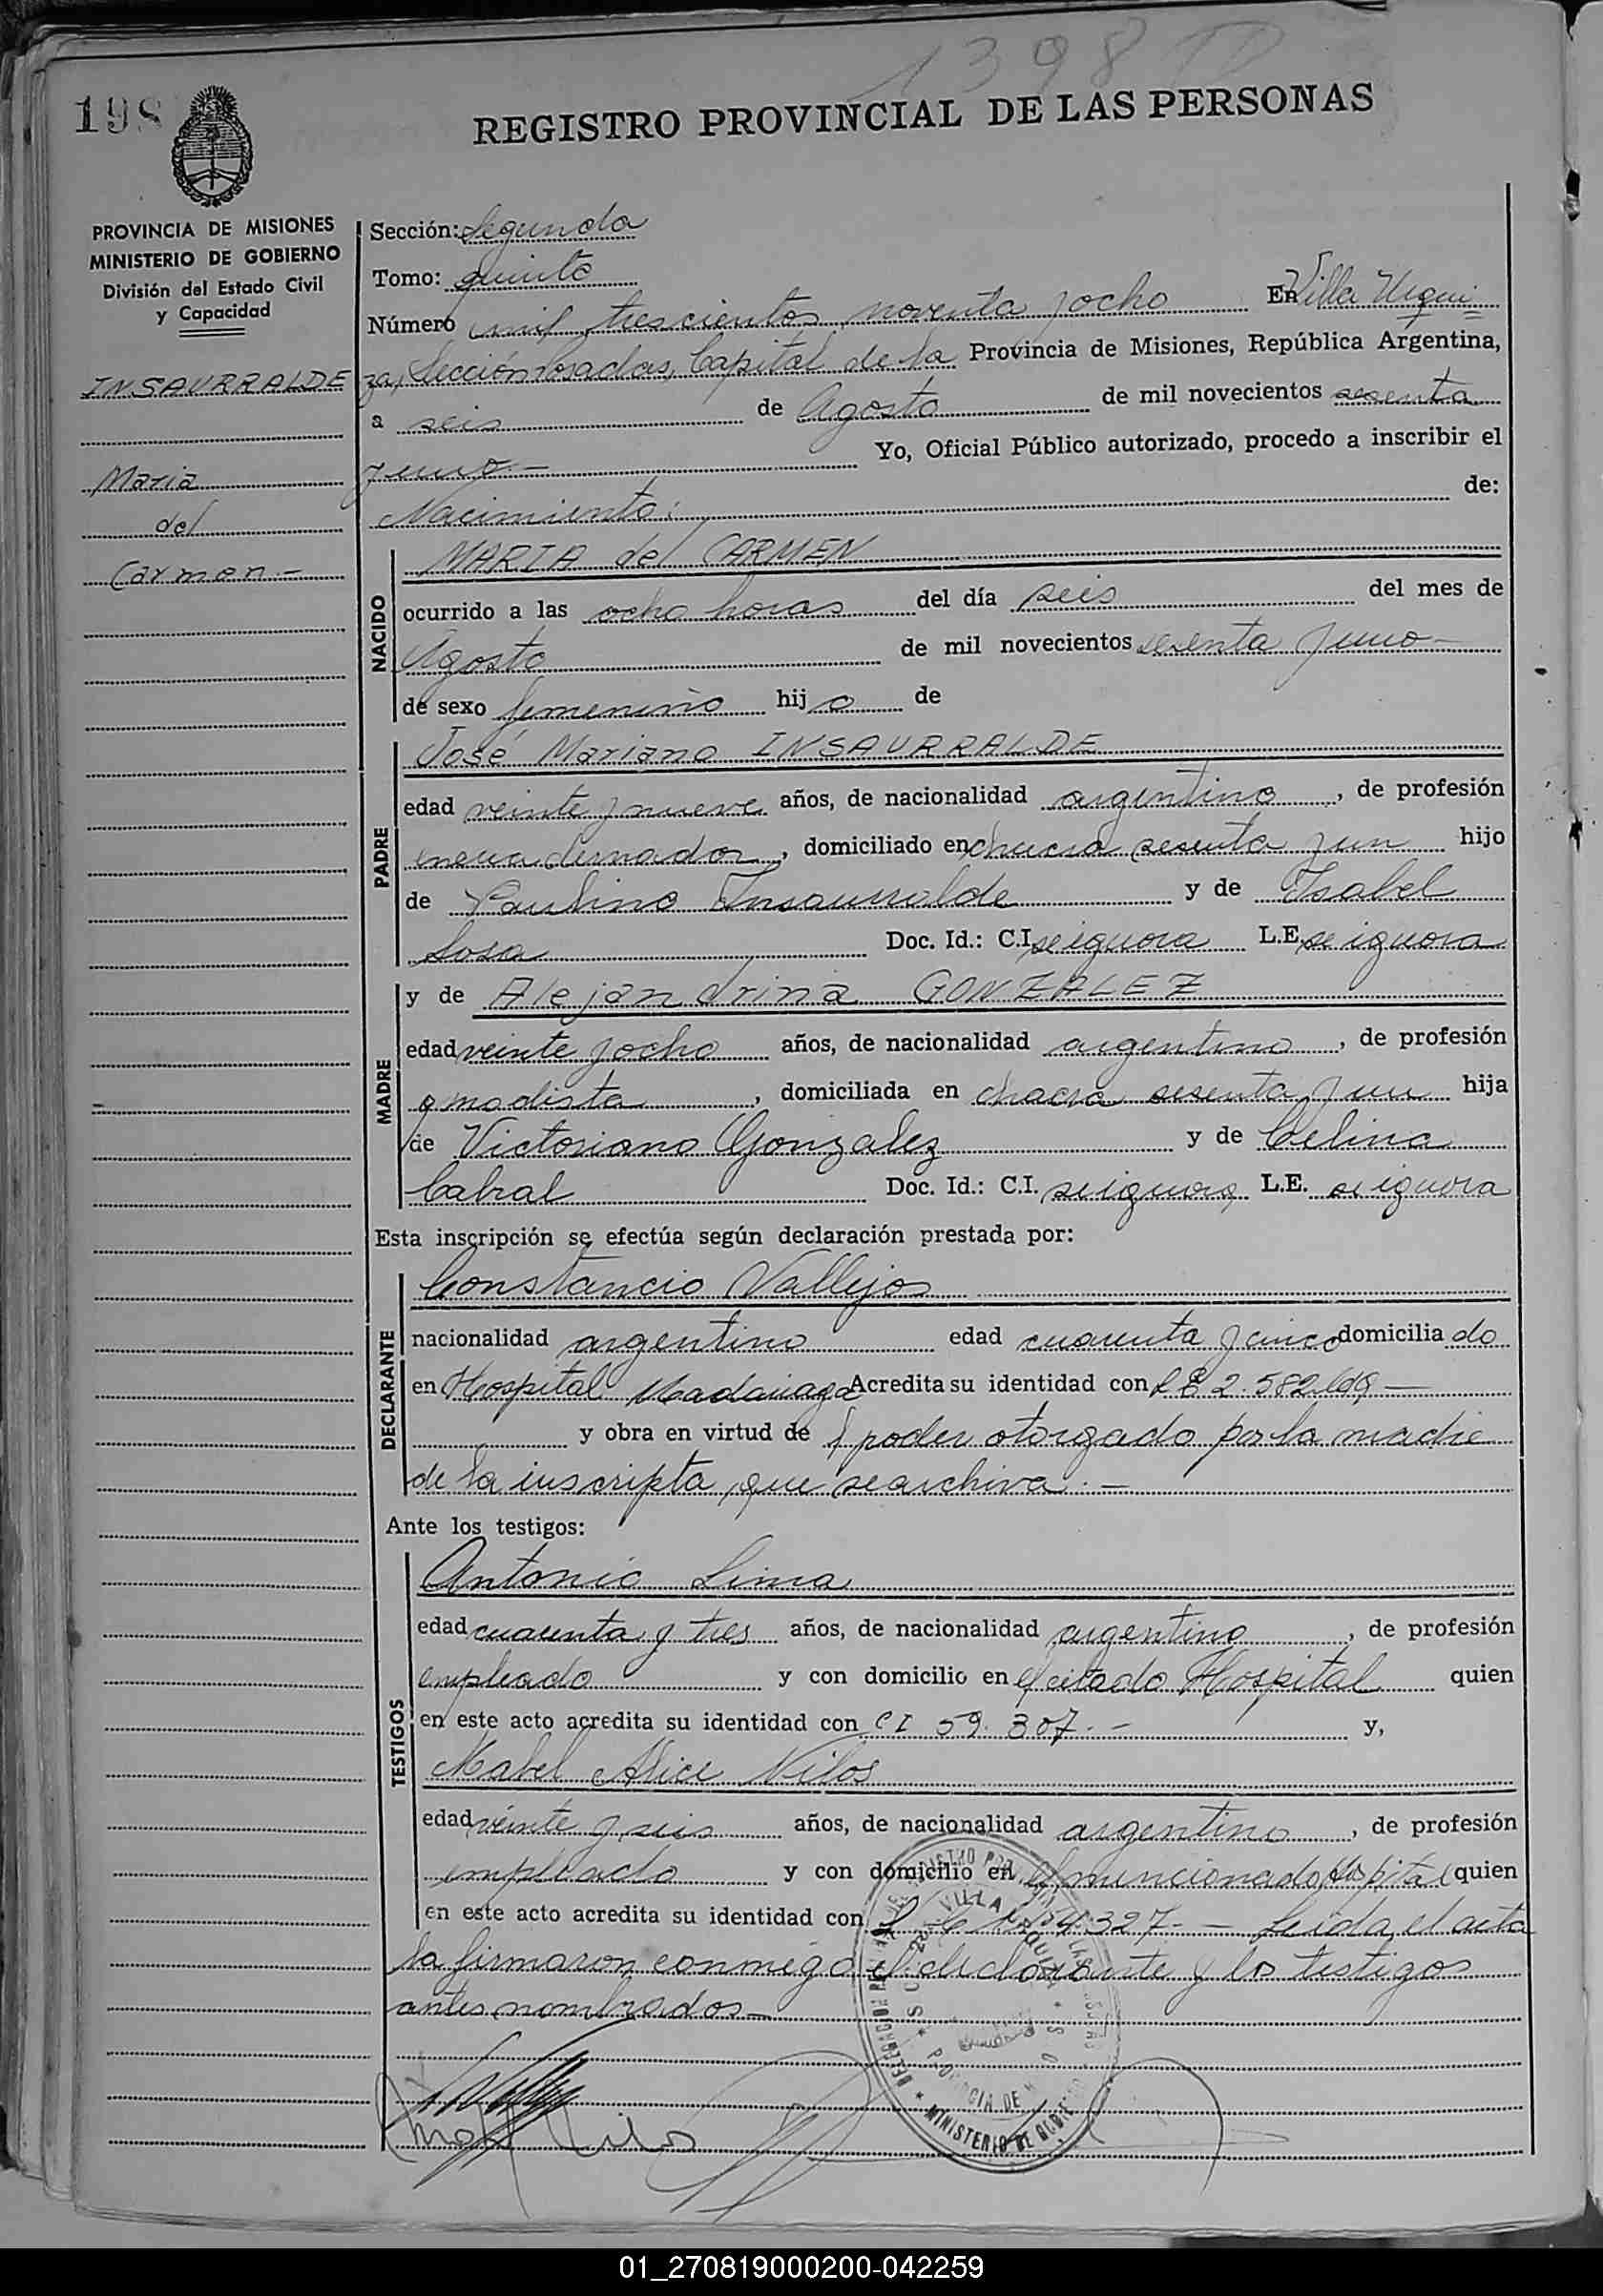 1398
198
REGISTRO PROVINCIAL DE LAS PERSONAS
PROVINCIA DE MISIONES
MINISTERIO DE GOBIERNO
División del Estado Civil
y Capacidad
INSAURRALDE
Maria
del
Carmen.-
Sección: Segunda
Tomo: quinto
Número mil trescientos noventa y ocho En Villa Urqui
za, Sección Posadas, Capital de la Provincia de Misiones, República Argentina,
a seis de Agosto de mil novecientos sesenta
y uno.- Yo, Oficial Público autorizado, procedo a inscribir el
Nacimiento: de:
NACIDO
MARIA del CARMEN
ocurrido a las ocho horas del día seis del mes de
Agosto de mil novecientos sesenta y uno-
de sexo femenino hijo de
PADRE
José Mariano INSAURRALDE
edad veinte y nueve años, de nacionalidad argentino, de profesión
encuadernador, domiciliado en chacra sesenta y un hijo
de Paulino Insaurralde y de Isabel
Sosa Doc. Id.: C.I. se ignora L.E. se ignora
MADRE
y de Alejandrina GONZALEZ
edad veinte y ocho años, de nacionalidad argentina, de profesión
modista, domiciliada en chacra sesenta y un hija
de Victoriano Gonzalez y de Celina
Cabral Doc. Id.: C.I. se ignora L.E. se ignora
Esta inscripción se efectúa según declaración prestada por:
DECLARANTE
Constancio Vallejos
nacionalidad argentino edad cuarenta y cinco domiciliado
en Hospital Madariaga Acredita su identidad con L E 2.582.
y obra en virtud de poder otorgado por la madre
de la inscripta, que se archiva.-
Ante los testigos:
TESTIGOS
Antonio Lima
edad cuarenta y tres años, de nacionalidad argentino, de profesión
empleado y con domicilio en el citado Hospital quien
en este acto acredita su identidad con C I 59.307.- y,
Mabel Alice Nilos
edad veinte y seis años, de nacionalidad argentina, de profesión
empleado y con domicilio en el mencionado Hospital quien
en este acto acredita su identidad con 327.- Leida el acta
la firmaron conmigo el declarante y los testigos
antes nombrados-
VILLA URQUIZA
MINISTERIO DE GOBIERNO
01_270819000200-042259